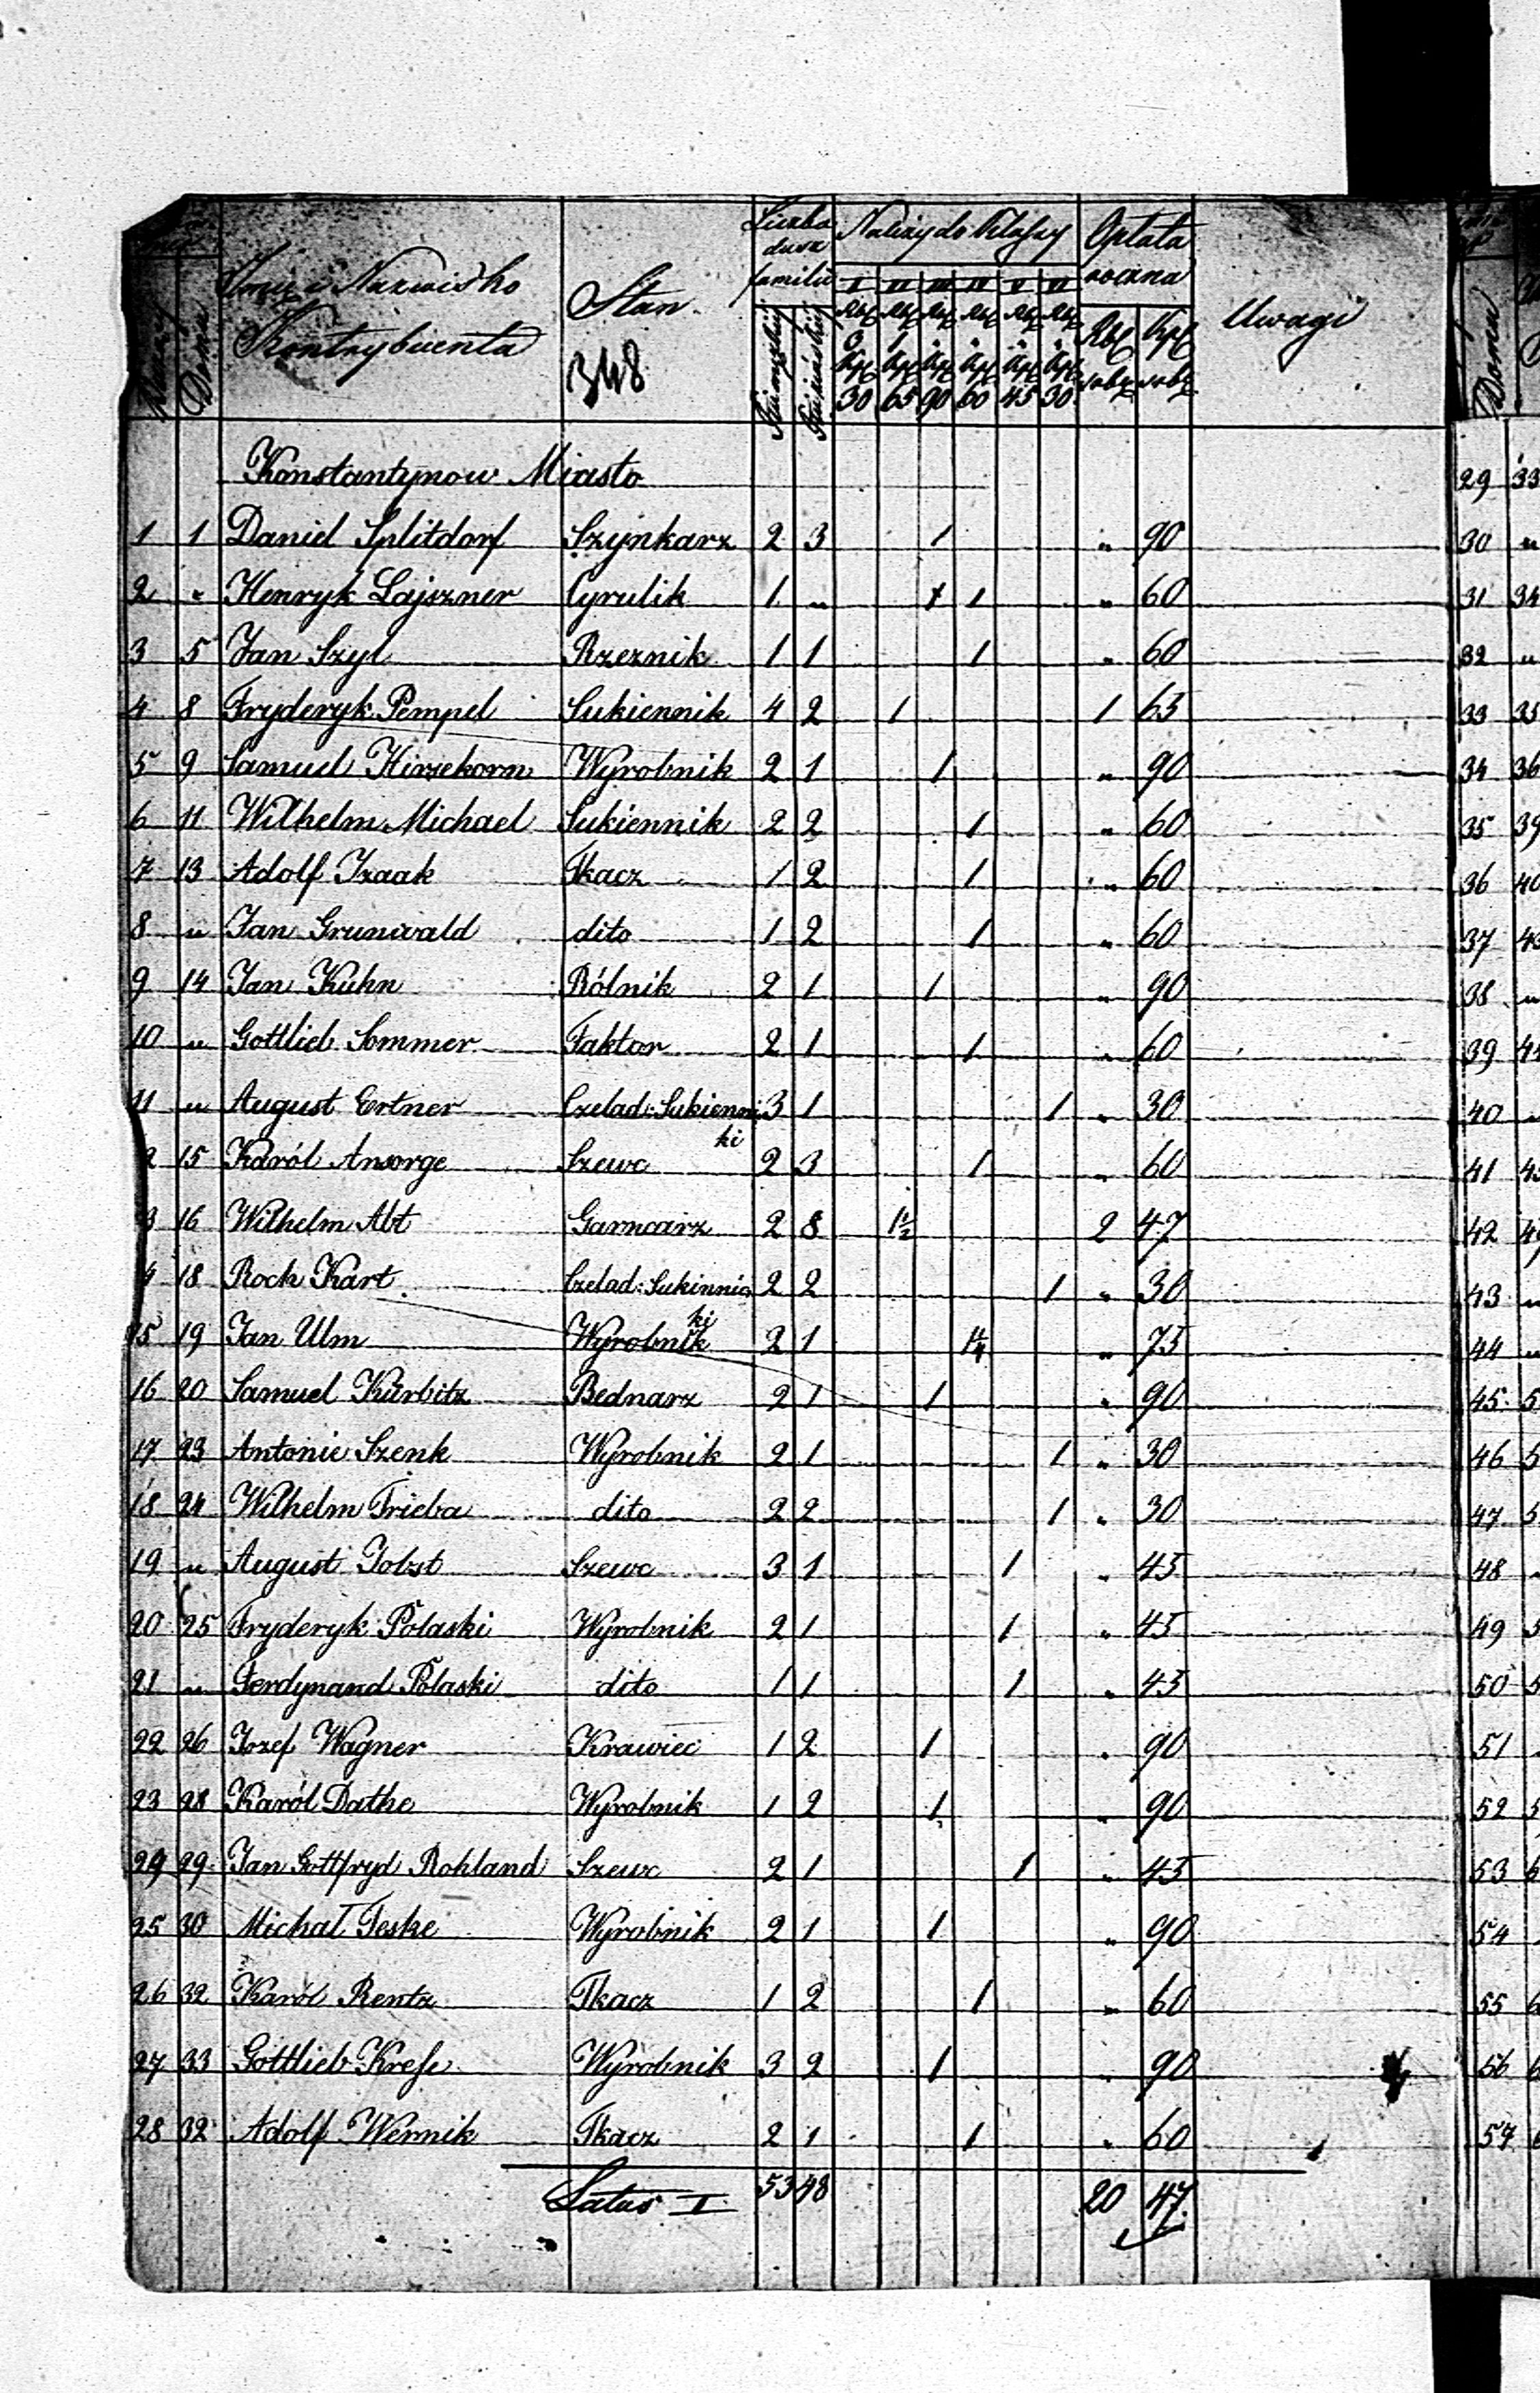 Imie i Nazwisko Kontrybuenta
Stan
348
Liczba dusz familii
Należy do Klassy
Opłata roczna
Uwagi
Domu
I II III IV V VI
Rbs. Rbs. Rbs. Rbs. Rbs. Rbs.
30 65 90 60 45 30
Konstantynow Miasto
1 1 Daniel Splitdorf Szynkarz 2 3 1 " 90
2 " Henryk Lajszner Cyrulik 1 " 1 " 60
3 5 Jan Szyl Rzeznik 1 1 1 " 60
4 8 Fryderyk Pempel Sukiennik 4 2 1 1 65
5 9 Samuel Hirzekorn Wyrobnik 2 1 1 " 90
6 11 Wilhelm Michael Sukiennik 2 2 1 " 60
7 13 Adolf Izaak Tkacz 1 2 1 " 60
8 " Jan Grunwald dito 1 2 1 " 60
9 14 Jan Kuhn Rólnik 2 1 1 " 90
10 " Gottlieb Sommer Faktor 2 1 1 " 60
11 " August Ertner Czelad: Sukiennicki 3 1 1 " 30
2 15 Karól Ansorge Szewc 2 3 1 " 60
3 16 Wilhelm Abt Garncarz 2 8 1½ 2 47
4 18 Roch Kart Czelad: Sukinnicki 2 2 1 " 30
15 19 Jan Ulm Wyrobnik 2 1 1¼ " 75
16 20 Samuel Kürbitz Bednarz 2 1 1 " 90
17 23 Antonie Szenk Wyrobnik 2 1 1 " 30
18 24 Wilhelm Frieba dito 2 2 1 " 30
19 " August Jobst Szewc 3 1 1 " 45
20 25 Fryderyk Polaski Wyrobnik 2 1 1 " 45
21 " Ferdynand Polaski dito 1 1 1 " 45
22 26 Jozef Wagner Krawiec 1 2 1 " 90
23 28 Karól Dathe Wyrobnik 1 2 1 " 90
24 29 Jan Gottfryd Rohland Szewc 2 1 1 " 45
25 30 Michał Teske Wyrobnik 2 1 1 " 90
26 32 Karól Rentz Tkacz 1 2 1 " 60
27 33 Gottlieb Krese Wyrobnik 3 2 1 " 90
28 32 Adolf Wernik Tkacz 2 1 1 " 60
Latus I 53 48 20 47
29 33
30 "
31 34
32 "
33 35
34 36
35 39
36 40
37
38 "
39
40
41
42
43 "
44 "
45
46
47
48
49
50
51
52
53
54
55
56
57